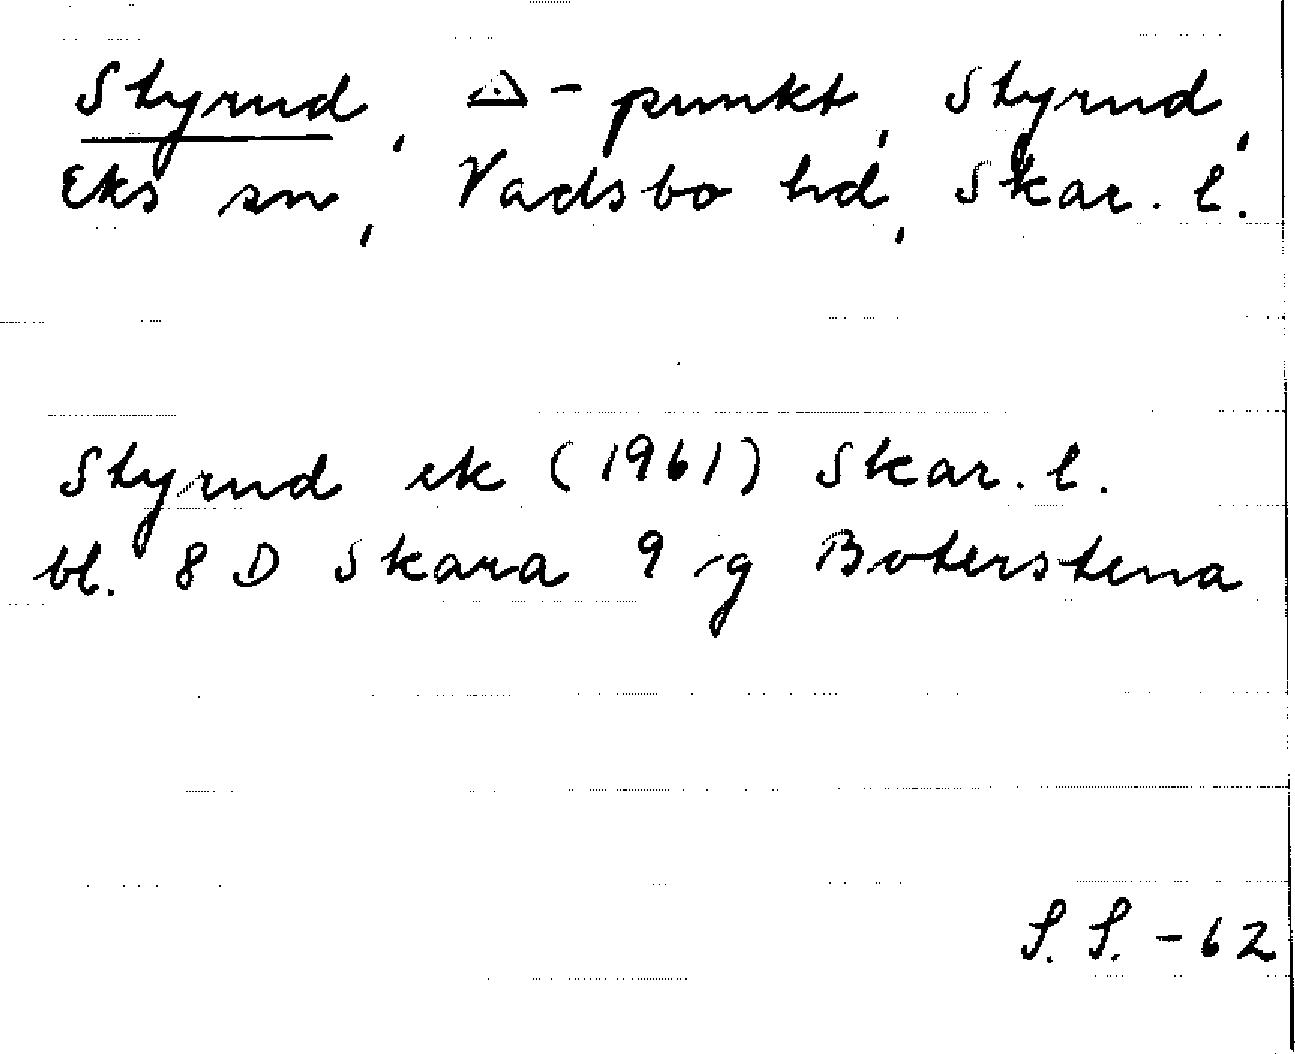 Styrud, △-punkt, Styrud,
Eks sn, Vadsbo hd, Skar. l.
Styrud ek (1961) Skar. l.
bl. 8 D Skara 9 g Boterstena
S. S. -62